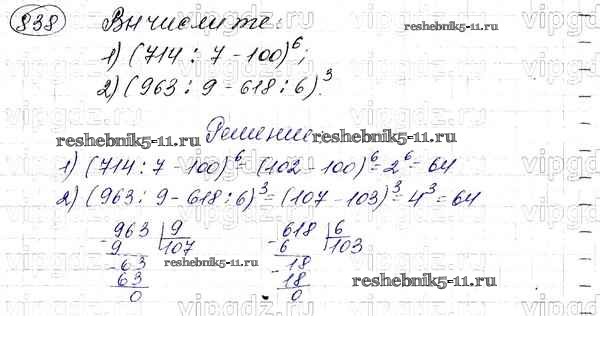 838 Вычислите:
1) (714 : 7 - 100)⁶;
2) (963 : 9 - 618 : 6)³.
Решение
1) (714 : 7 - 100)⁶ = (102 - 100)⁶ = 2⁶ = 64
2) (963 : 9 - 618 : 6)³ = (107 - 103)³ = 4³ = 64
- 963 | 9 - 618 | 6
9 107 6 103
- 63 - 18
63 18
0 0
reshebnik5-11.ru
reshebnik5-11.ru
reshebnik5-11.ru
reshebnik5-11.ru
reshebnik5-11.ru
vipgdz.ru